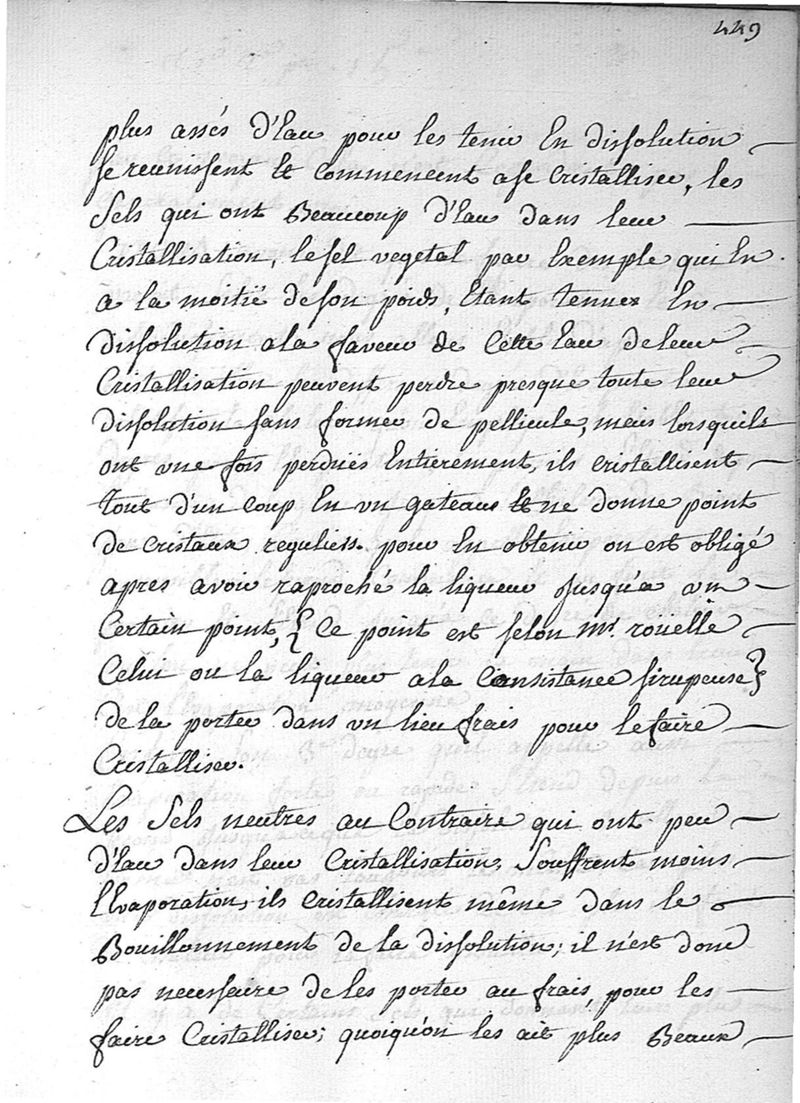 449
plus assés d'Eau pour les tenir En dissolution
se reunissent et commencent a se Cristalliser, les
Sels qui ont Beaucoup d'Eau dans leur
Cristallisation, le sel vegetal par Exemple qui En
a la moitié de son poids, Etant tenues En
Dissolution a la faveur de Cette Eau de leur
Cristallisation peuvent perdre presque toute leur
dissolution sans former de pellicule, mais lorsquils
ont une fois perduës Entierement, ils cristallisent
tout d'un coup En un gateaux et ne donne point
de cristaux reguliers. pour En obtenir on est obligé
apres avoir raproché la liqueur Jusqu'a un
Certain point, { Ce point est selon mr. rouelle
Celui ou la liqueur a la Consistance sirupeuse}
de la porter dans un lieu frais pour le faire
Cristalliser.
Les Sels neutres au Contraire qui ont peu
d'Eau dans leur Cristallisation, Souffrent moins
l'Evaporation, ils cristallisent même dans le
Bouillonnement de la dissolution; il n'est donc
pas necessaire de les porter au frais, pour les
faire Cristalliser; quoiqu'on les ait plus Beaux